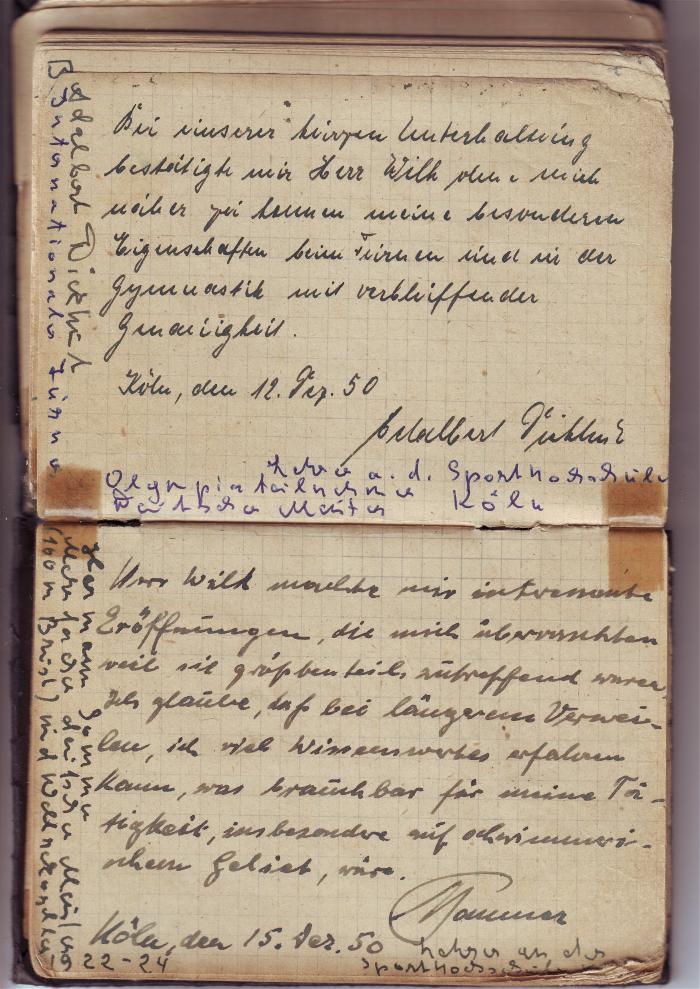 Bei unserer kurzen Unterhaltung
bestätigte mir Herr Wilk ohne mich
näher zu kennen meine besonderen
Eigenschaften beim Turnen und in der
Gymnastik mit verblüffender
Genauigkeit.
Köln, den 12. Dez. 50
Adalbert Dickhut
Lehrer a. d. Sporthochschule
Olympiateilnehmer Köln
Deutscher Meister
Adalbert Dickhut
Internationaler Turner
Herr Wilk machte mir interessante
Eröffnungen, die mich überraschten
weil sie größtenteils zutreffend waren.
Ich glaube, daß bei längerem Verwei-
len, ich viel Wissenswertes erfahren
kann, was brauchbar für meine Tä-
tigkeit, insbesondre auf schwimmeri-
schem Gebiet, wäre.
Köln, den 15. Dez. 50
Lehrer an der
Sporthochschule
Hermann
Mehrfacher deutscher Meister
(100 m Brust) und
22-24